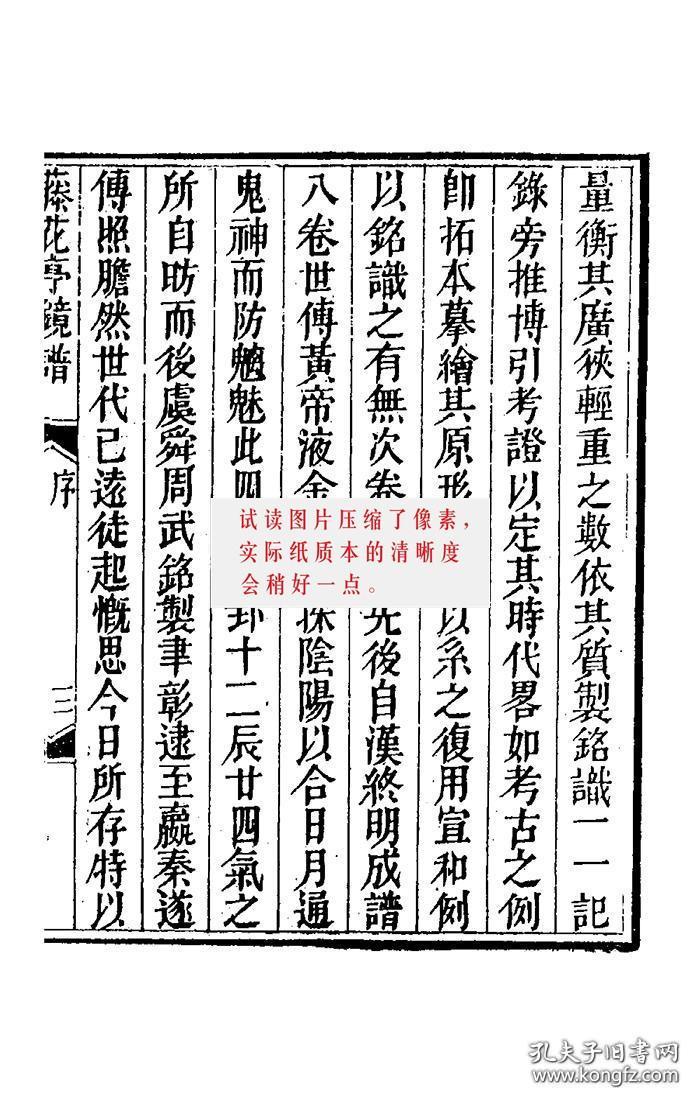 量衡其廣狹輕重之數依其質製銘識一一記
錄旁推博引考證以定其時代畧如考古之例
卽拓本摹繪其原形 以系之復用宣和例
以銘識之有無次卷 先後自漢終明成譜
八卷世傳黃帝液金 探陰陽以合日月通
鬼神而防魑魅此四 卦十二辰廿四氣之
所自昉而後虞舜周武銘製聿彰逮至嬴秦遂
傳照膽然世代已遠徒起慨思今日所存特以
藤花亭鏡譜 序 三
试读图片压缩了像素，
实际纸质本的清晰度
会稍好一点。
孔夫子旧书网
www.kongfz.com